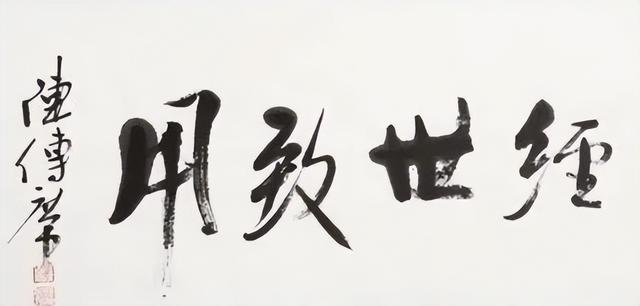 經世致用
陳傳席